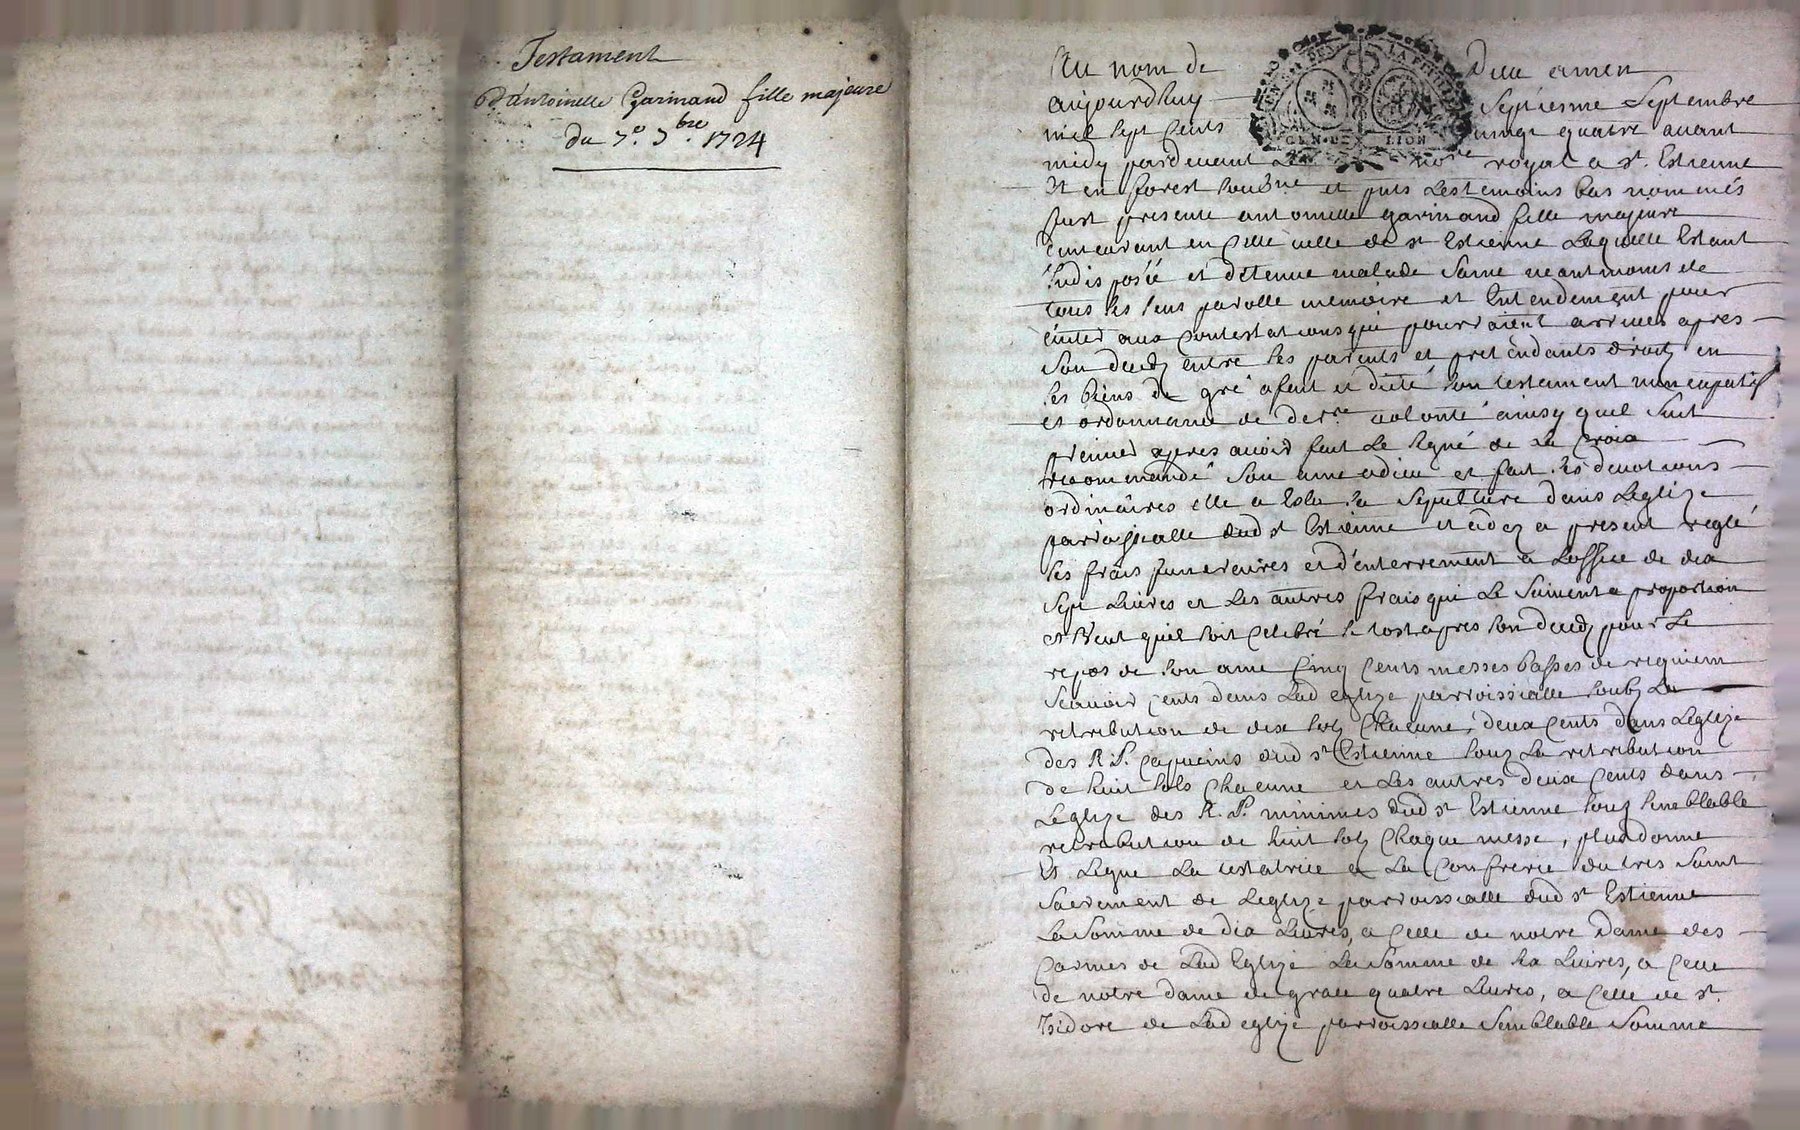 Testament
D'antoinette Garinand fille majeure
du 7.e 7.bre 1724
Au nom de Dieu amen
aujourdhuy septiesme septembre
mil sept cents vingt quatre avant
midy pardevant Le nore royal a st. Estienne
Et en forest soubzne et puis Les temoins bas nommés
fust presente antoinette garinand fille majeure
demeurant en cette ville de st Estienne Laquelle Estant
Indisposée et detenue malade saine neantmoins de
tous ses sens parolle memoire et Entendement pour
éviter aux contestations qui pourraient arriver apres
son deceds entre ses parents et pretendants droits en
ses biens de gré a fait et dicté son testament nuncupatif
et ordonnance de derre. volonté ainsy quil suit
premier apres avoir fait Le signé de La Croix
recommandé son ame a dieu et fait ses devotions
ordinaires elle a Eslu sa sepulture dans Leglize
parroissialle dud st Estienne et a dez a present reglé
ses frais funeraires et d'enterrement a Loffice de dix
sept Livres et Les autres frais qui Le suivent a proportion
et Veut quil soit celebré si tost apres son deceds pour Le
repos de son ame Cinq Cents messes basses de requiem
scavoir cents dans Lad eglize parroissialle soubz La
retribution de dix sols chacune, deux cents dans Leglize
des R.P. capucins dud st Estienne souz La retribution
de huit sols chacune et Les autres deux cents dans
Leglize des R.P. minimes dud st Estienne souz semblable
retribution de huit sols chaque messe, plus donne
Et Legue La testatrice a La Confrerie du tres saint
sacrement de Leglize parroissialle dud st Estienne
La somme de dix Livres, a celle de notre dame des
carmes de Lad Eglize La somme de six Livres, a celle
de notre dame de grace quatre Livres, a celle de st.
Isidore de Lad eglize parroissialle semblable somme
GEN. DE LION